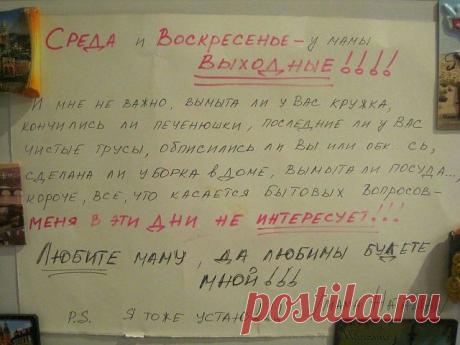 Среда и Воскресенье – у мамы
выходные!!!!
И мне не важно, вымыта ли у Вас кружка,
кончились ли печенюшки, последние ли у Вас
чистые трусы, обписились ли Вы или обк сь,
сделана ли уборка в доме, вымыта ли посуда...,
короче, все, что касается бытовых вопросов –
меня в эти дни не интересует!!!
Любите маму, да любимы будете
мной!!!
P.S. Я тоже
postila.ru